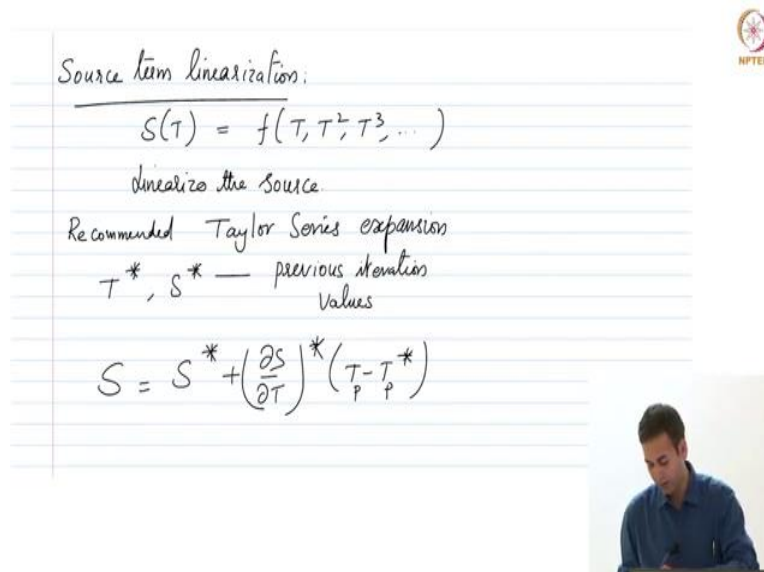 Source term linearization:
S(T) = f(T, T², T³, ...)
Linearize the source.
Recommended Taylor Series expansion
T*, S* — previous iteration
values
S = S* + (∂S/∂T)* (T_P - T_P*)
NPTEL